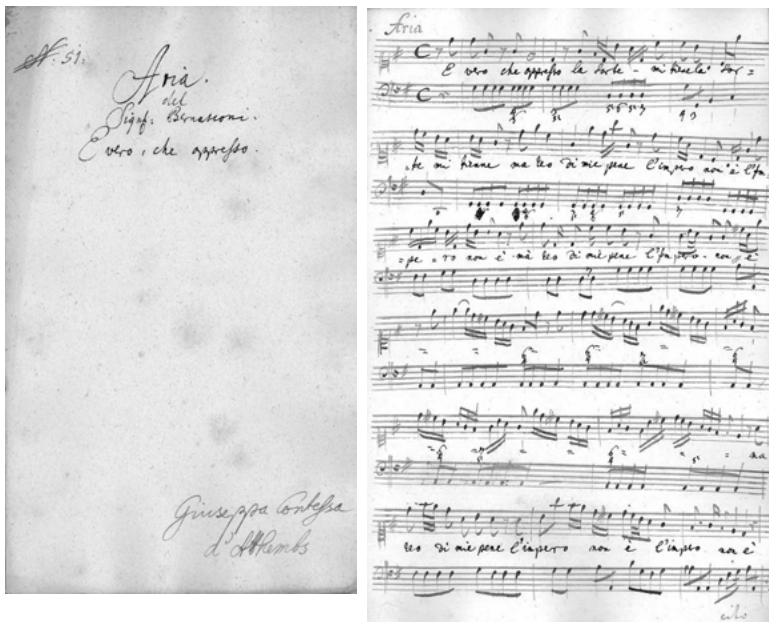 N: 51.
Aria.
del
Sigr. Bernasconi.
E vero, che appresso.
Giuseppa Contessa
d'Althembs
Aria
E vero che appresso la sorte - mi tiene la sor =
te mi tienne ma reo di mie pene l'impero non è l'Im,
= pe = ro non è ma reo di mie pene l'Impero. non è
ma
reo di mie pene l'impero non è l'impero non è
cito